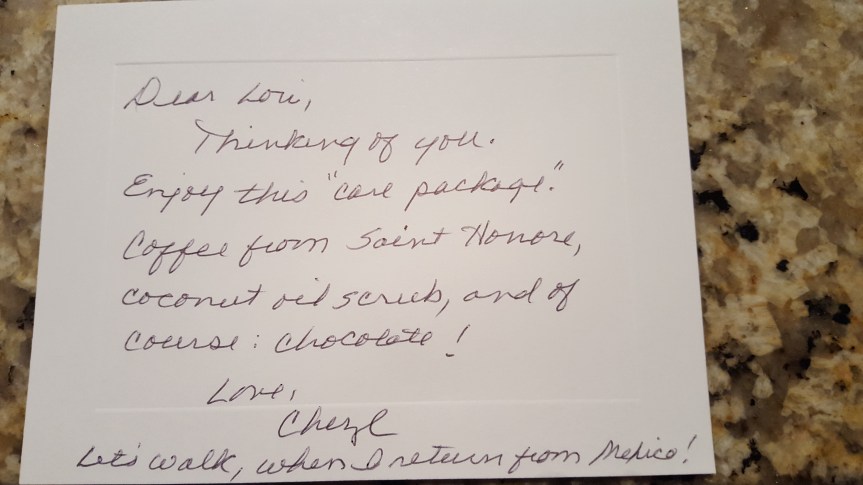 Dear Lori,
Thinking of you.
Enjoy this "care package."
Coffee from Saint Honore,
coconut oil scrub, and of
course: chocolate!
Love,
Cheryl
Let's walk, when I return from Mexico!